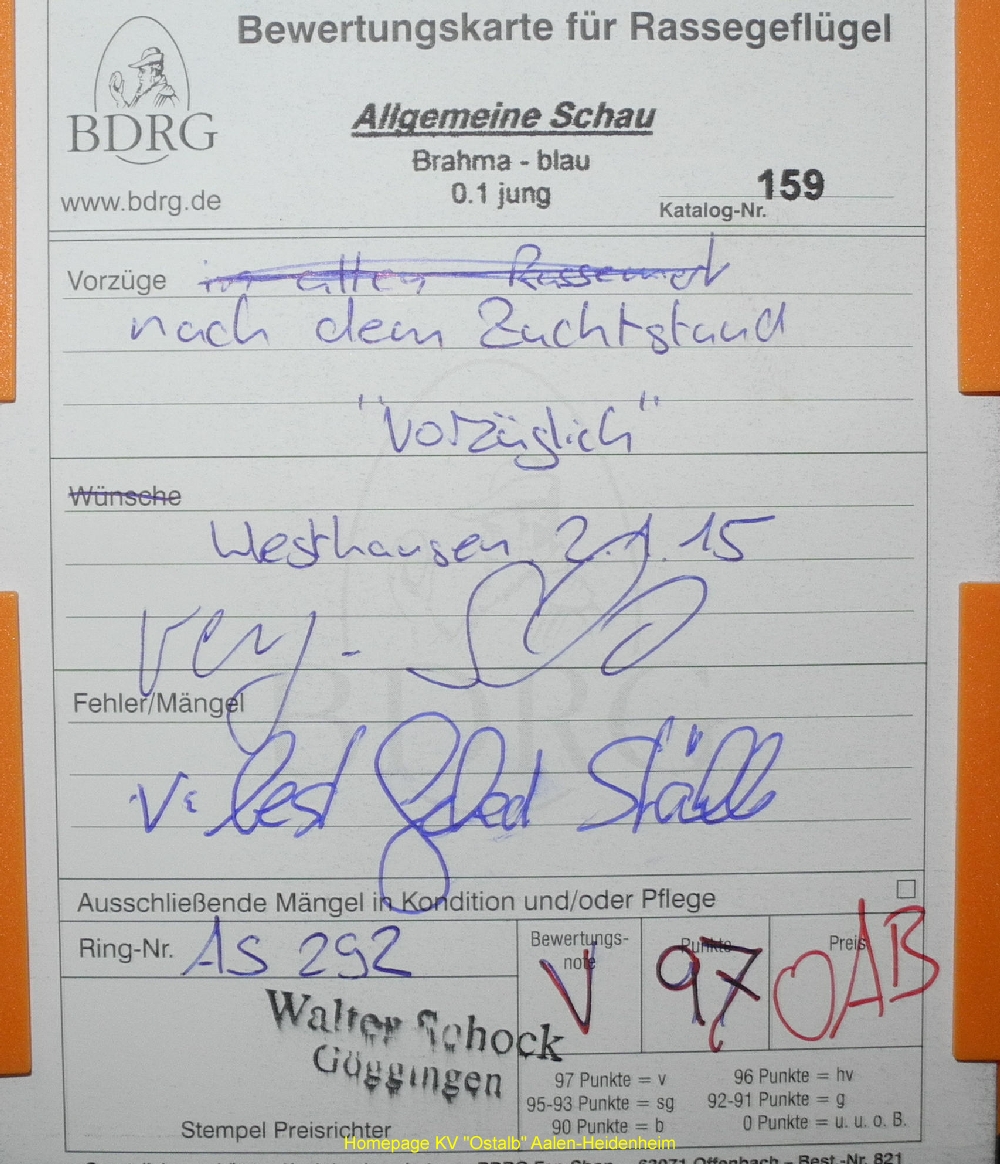 Bewertungskarte für Rassegeflügel
BDRG
www.bdrg.de
Allgemeine Schau
Brahma - blau
0.1 jung
159
Katalog-Nr.
Vorzüge
nach dem Zuchtstand
"Vorzüglich"
Wünsche
Westhausen 2.1.15
Fehler/Mängel
Ausschließende Mängel in Kondition und/oder Pflege
Ring-Nr. AS 292
Bewertungs-
note
V
Punkte
97
Preis
OAB
Walter Schock
Göggingen
Stempel Preisrichter
97 Punkte = v
96 Punkte = hv
95-93 Punkte = sg
92-91 Punkte = g
90 Punkte = b
0 Punkte = u. u. o. B.
Homepage KV "Ostalb" Aalen-Heidenheim
Offenbach - Best.-Nr. 821